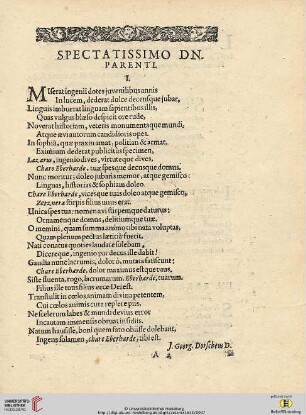 SPECTATISSIMO DN.
PARENTI.
I.
Miserat ingenii dotes juvenilibus annis
In lucem, dederat dulce decensque jubar,
Linguis imbuerat linguam sapientibus illis,
Quas vulgus blæso despicit ore rude,
Noverat historiam, veteris monumenta que mundi,
Atque ævi autorum candidioris opes.
In sophia, quæ prœxin amat, politian & armat.
Eximium dederat publicitus specimen,
Lazarus, ingenio dives, virtuteque dives,
Chare Eberharde, tuæ spesque decusque domus.
Nunc moritur; doleo jubaris memor, atque gemisco:
Linguas, historias & sophiam doleo.
Chare Eberharde, vicesque tuas doleo atque gemisco,
stirpis filius unus erat.
Unica spes tua; nomen avi stirpemque daturus;
Ornamenque domus, deliciumque tuum.
O memini, quam summa animo tibi nota voluptas,
Quam plenum pectus lætitiæ fuerit.
Nati conatus quoties laudare solebam,
Dicereque, ingenio por decus ille dabit!
Gaudia nunc lacrumis, dolor ô, mutata fatiscunt;
Chare Eberharde, dolor maximus est que tuus,
Siste fluenta, rogo, lacrumarum, Eberharde, tuarum.
Filius ille tuus sicut erat Deo est.
Transtulit in cœlos animam divina petentem,
Cui cœlos animis cura replere piis.
Ne scelerum labes & mundi devius error
Incautam immensis obruat insidiis.
Natum hausisse, boni quem fato obiisse dolebant,
Ingens solamen, chare Eberharde, tibi est.
J. Georg. Dorscheus D.
A 2
UNIVERSITÄTS-
BIBLIOTHEK
HEIDELBERG
© Universitätsbibliothek Heidelberg